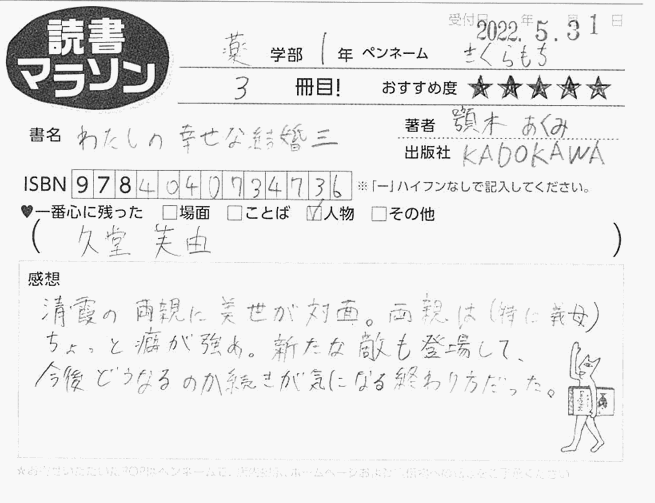 読書
マラソン
受付日 2022.5.31日
薬 学部 1 年 ペンネーム さくらもち
3 冊目! おすすめ度 ★★★★★
書名 わたしの幸せな結婚三
著者 顎木 あくみ
出版社 KADOKAWA
ISBN 9784040734736 ※「ー」ハイフンなしで記入してください。
♥一番心に残った □場面 □ことば ☑人物 □その他
( 久堂 芙由 )
感想
清霞の両親に美世が対面。両親は(特に義母)
ちょっと癖が強め。新たな敵も登場して、
今後どうなるのか続きが気になる終わり方だった。